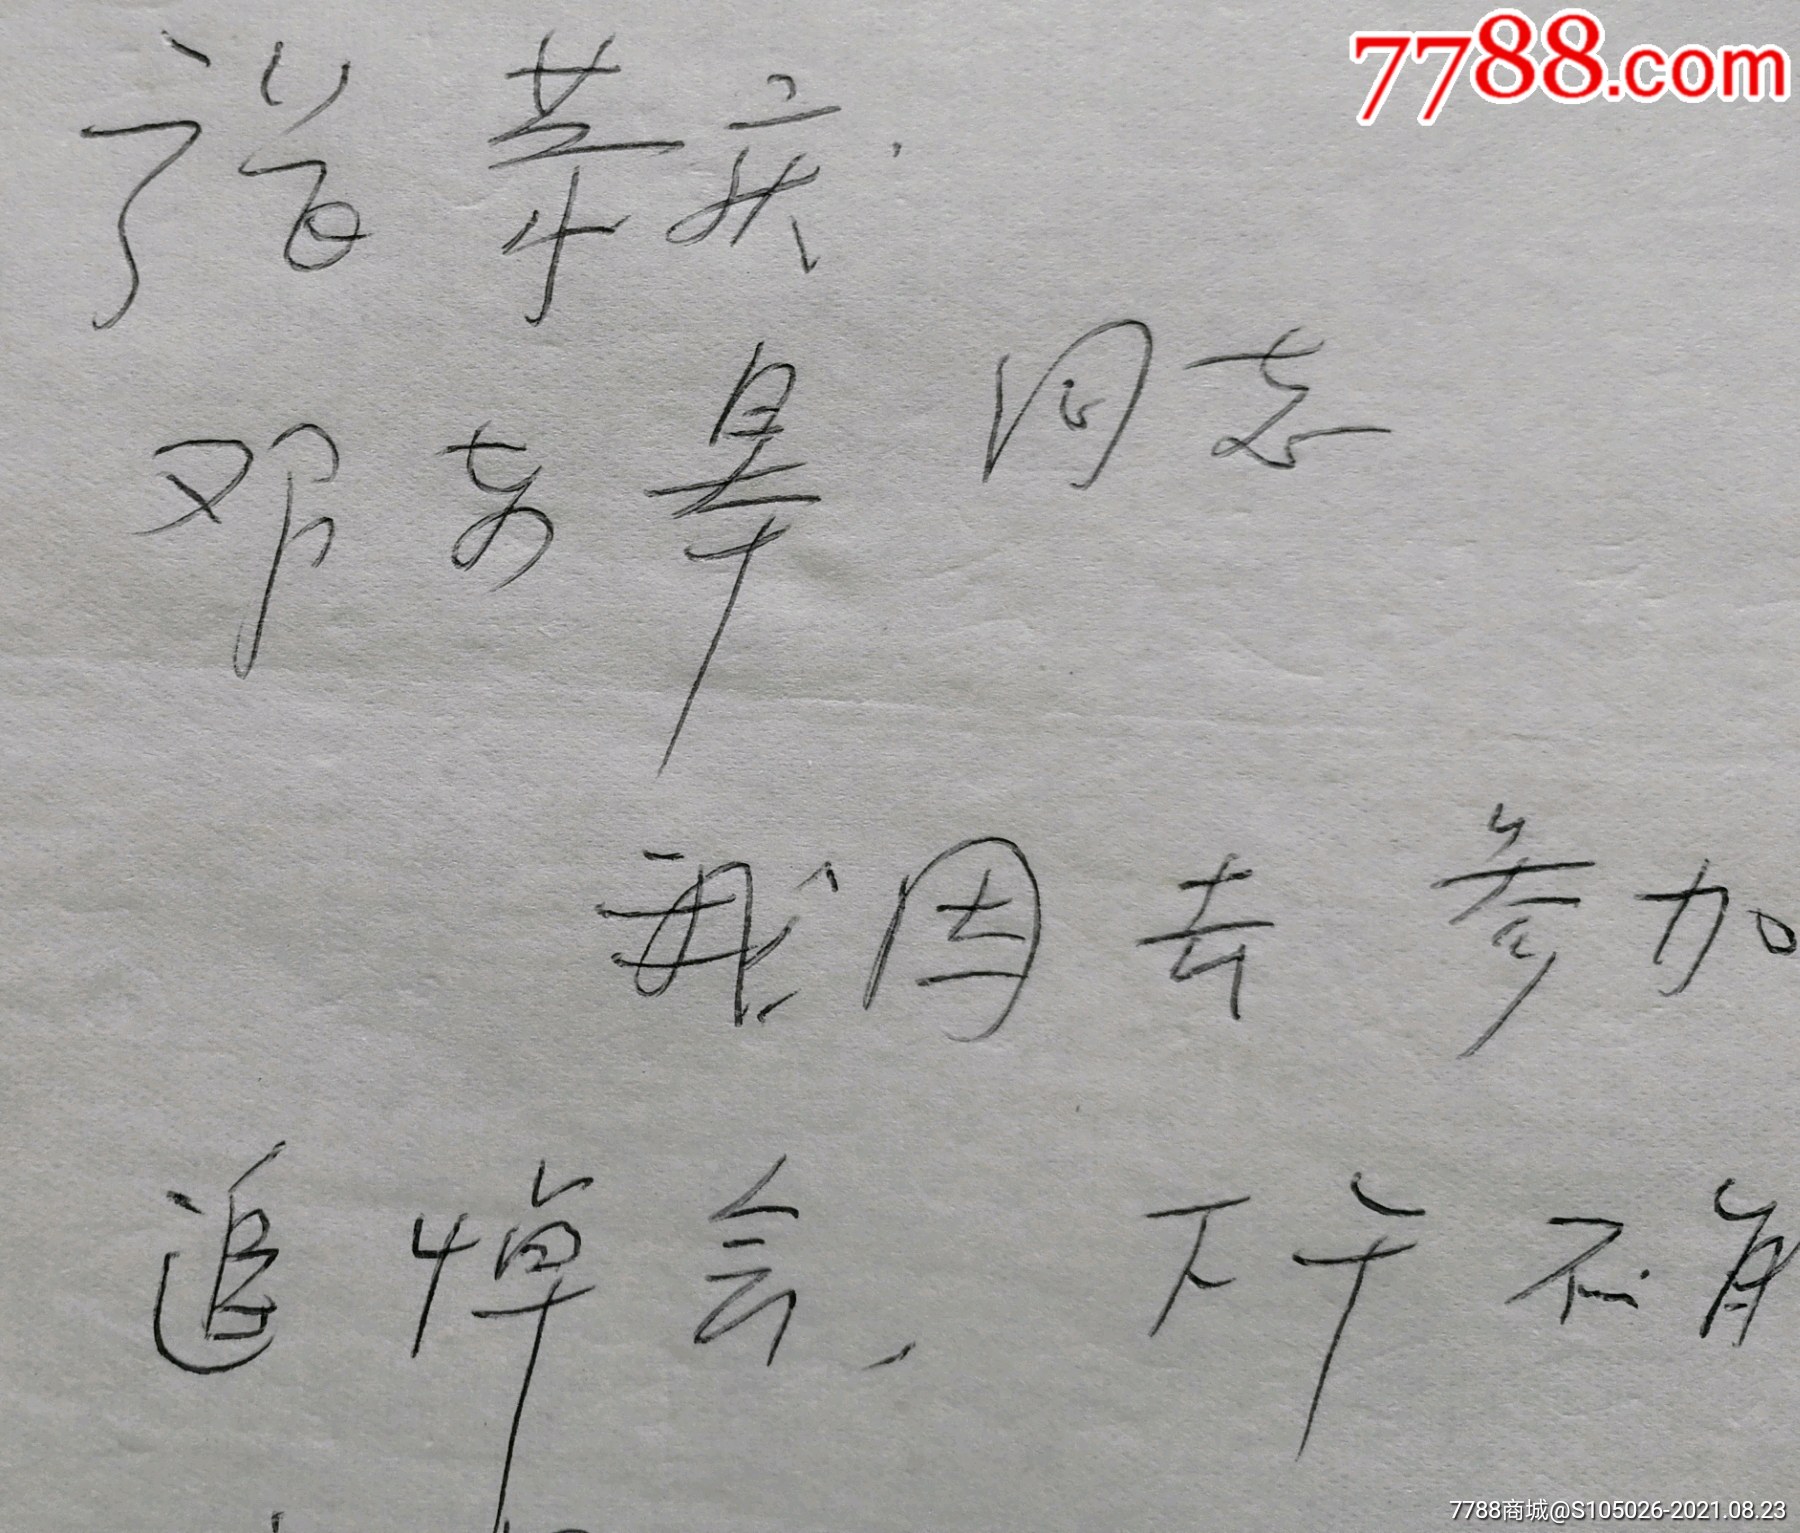 7788.com
荣庆
邓 皋 同志
我因去参加
追悼会, 下午不
7788商城@S105026-2021.08.23